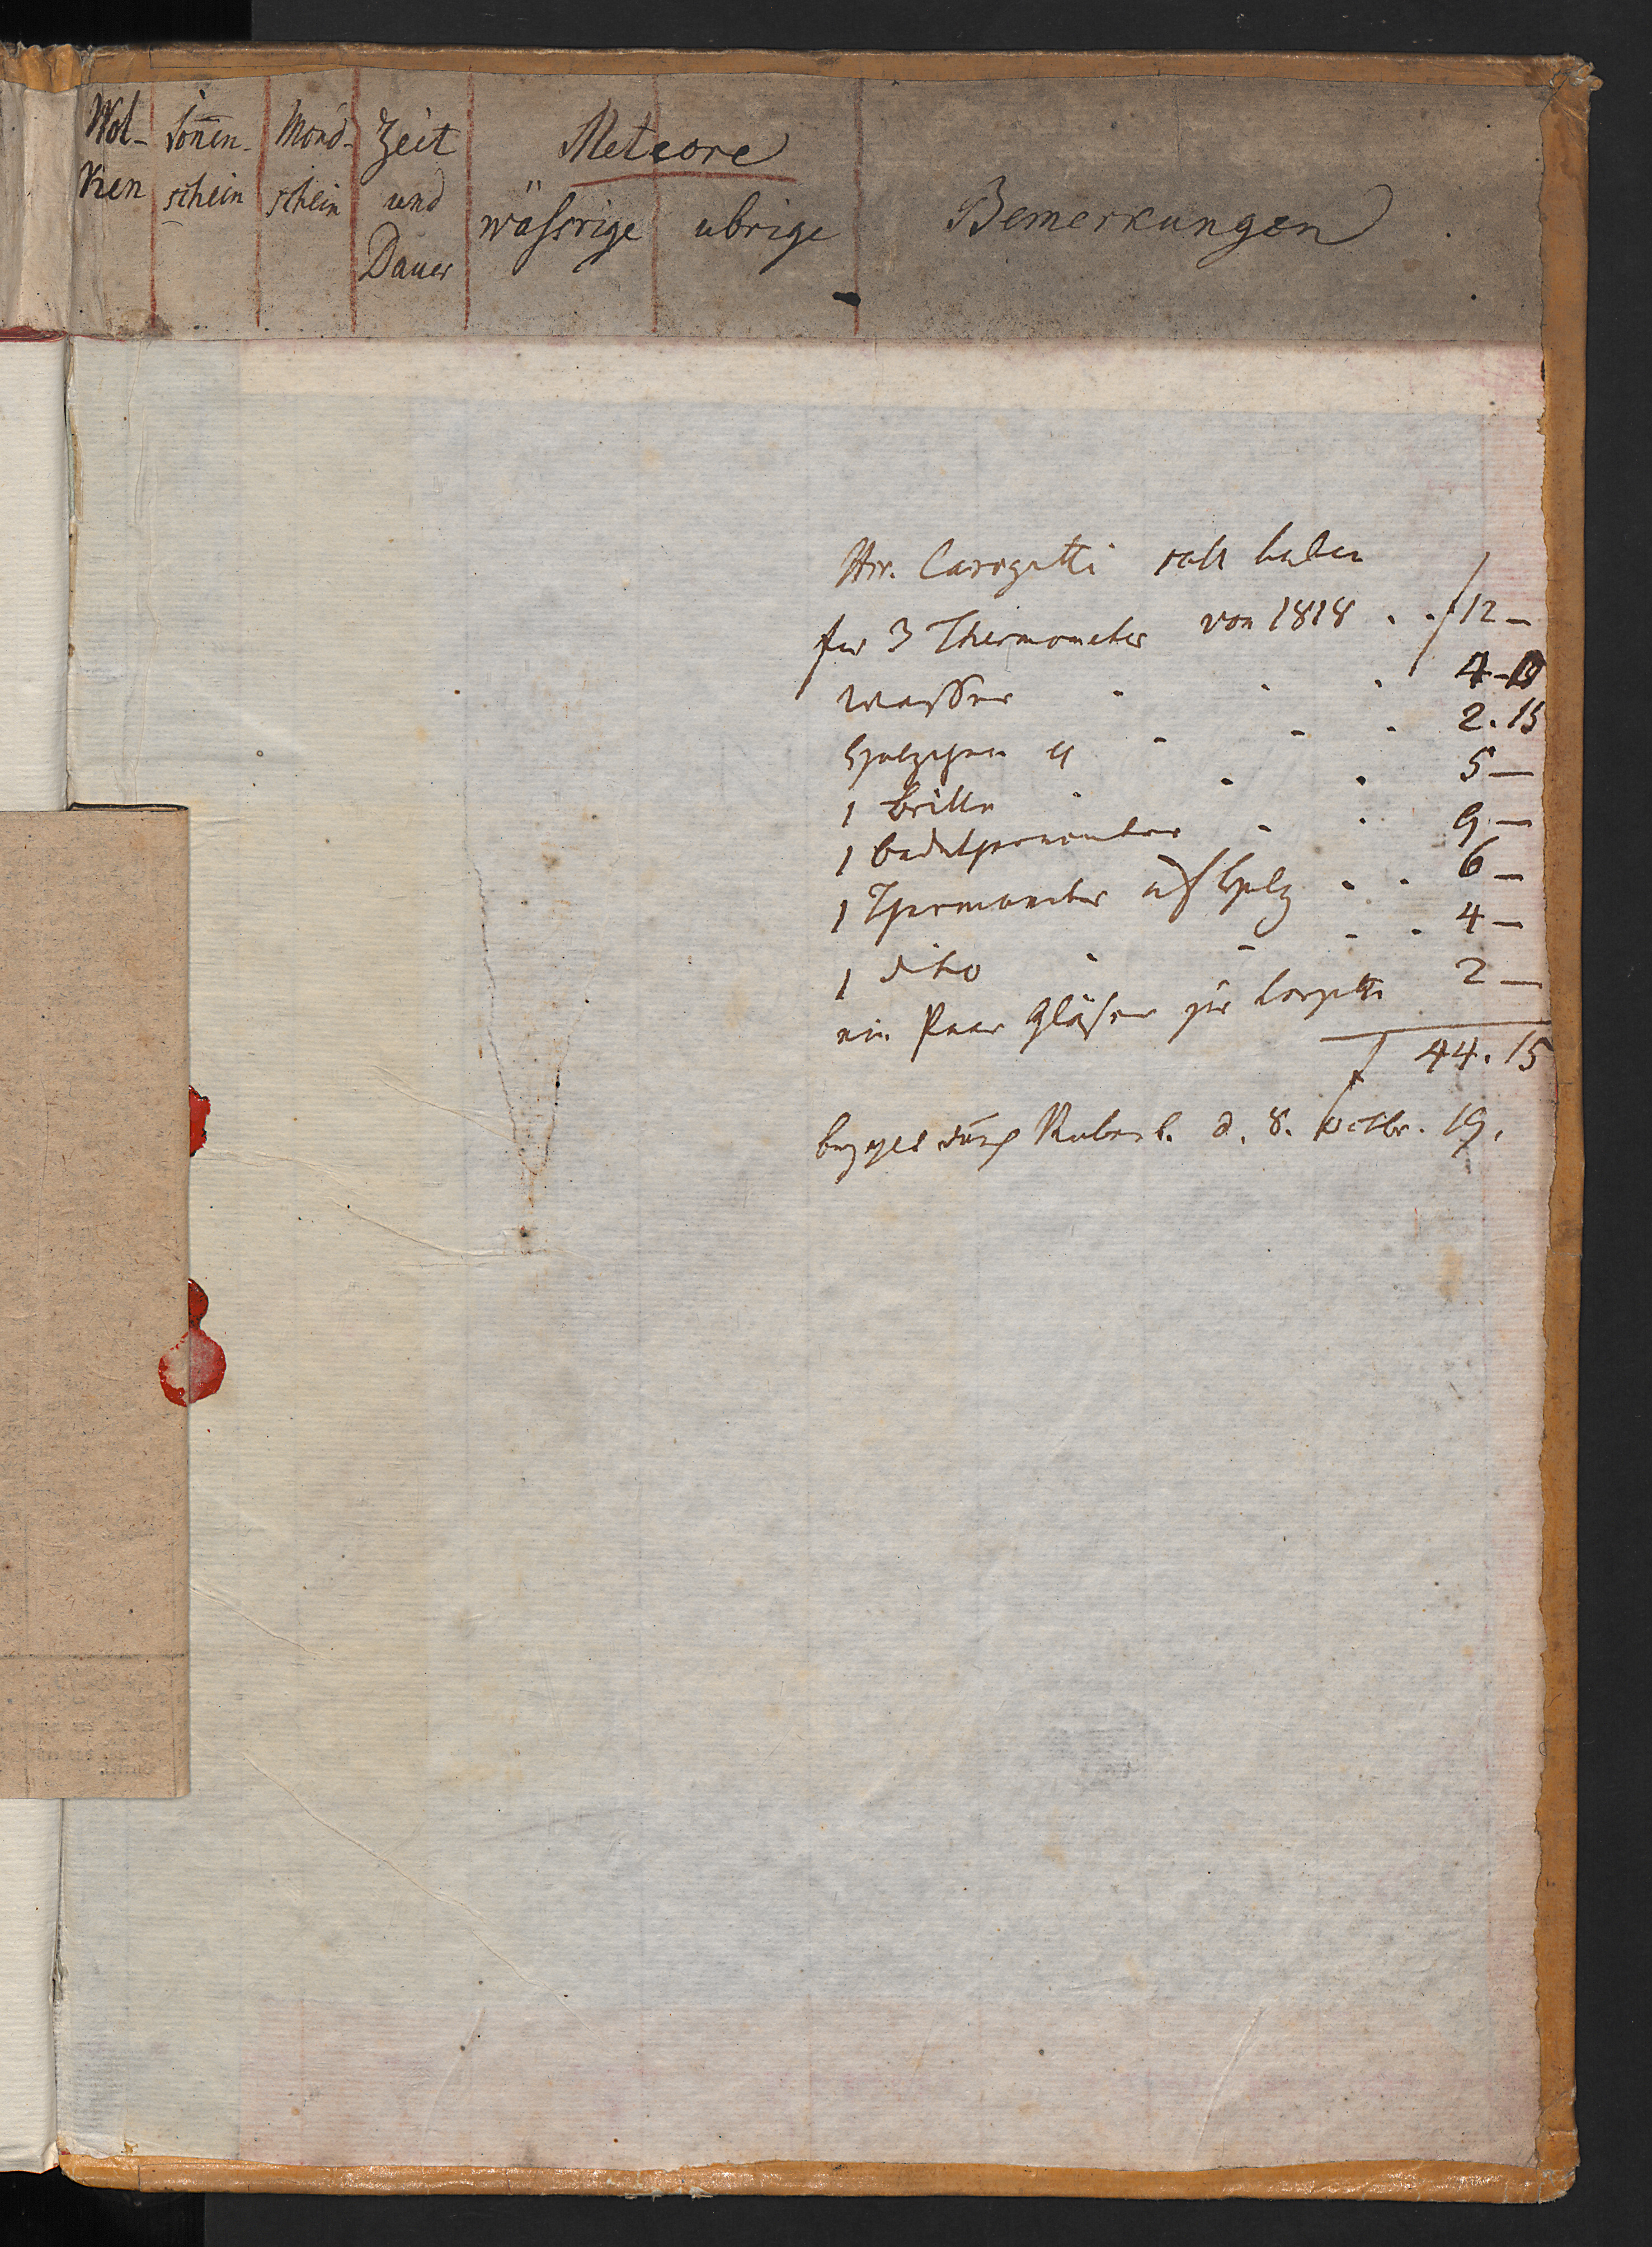 Wol-
ken
Sonnen-
schein
Mond-
schein
Zeit
und
Dauer
Meteore
wäßrige
ubrige
Bemerkungen
Hr. Caregetti soll haben
für 3 Thermometer von 1818 . . f 12 —
4 -
2. 15
1 Brille . . . 5 —
1 Badethermometer . . 9 —
1 Thermometer auf Holz . . 6 —
1 dito . . . . 4 —
ein Paar Gläser zur 2 —
f 44. 15
bezahlt durch d. 8. Octbr. 19.